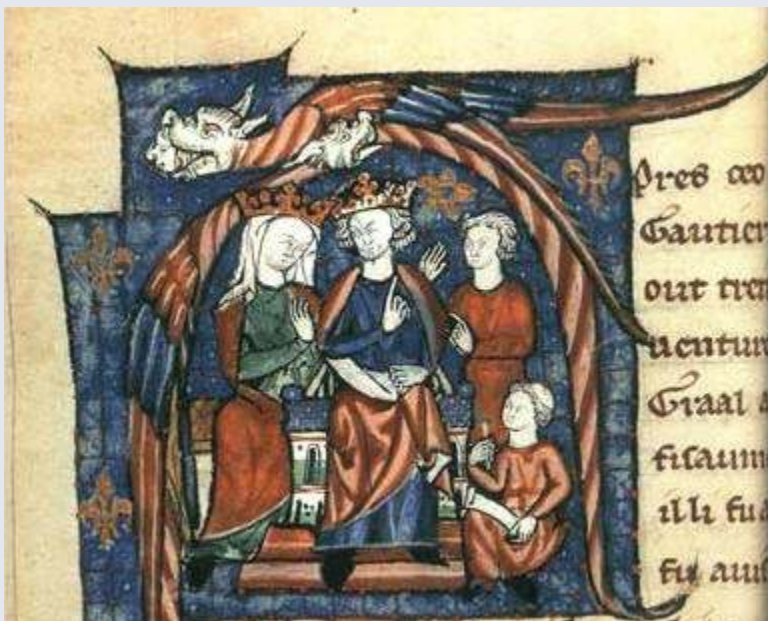 pres ceo
Gautier
out tret
uenture
Graal a
fisaume
illi fu
fu auis